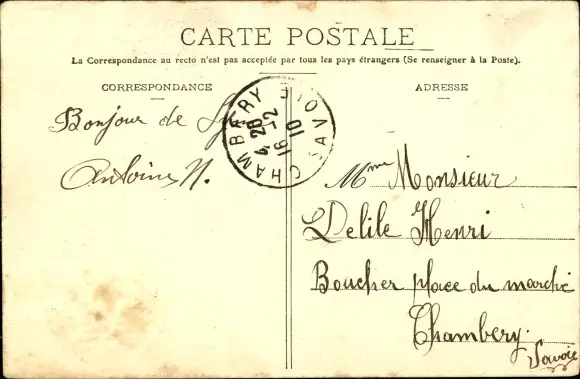 CARTE POSTALE
La Correspondance au recto n'est pas acceptée par tous les pays étrangers (Se renseigner à la Poste).
CORRESPONDANCE
Bonjour de
Antoine N.
CHAMBERY SAVOIE
4 20
16 -12
10
ADRESSE
Mme Monsieur
Delile Henri
Boucher place du marché
Chambery.
Savoie